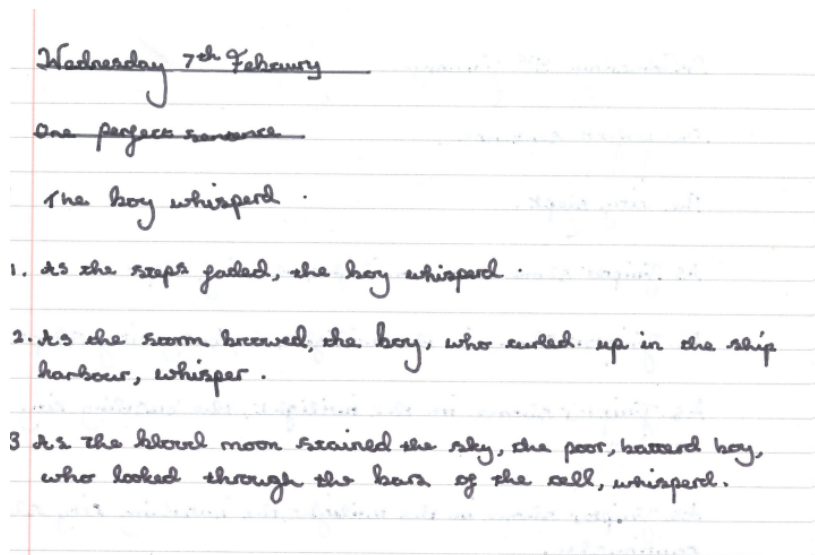 Wednesday 7th Febraury
One perfect sentence
The boy whisperd .
1. As the steps faded, the boy whisperd .
2. As the storm broowed, the boy, who curled up in the ship
harbour, whisper .
3 As the blood moon stained the sky, the poor, batterd boy,
who looked through the bars of the cell, whisperd.